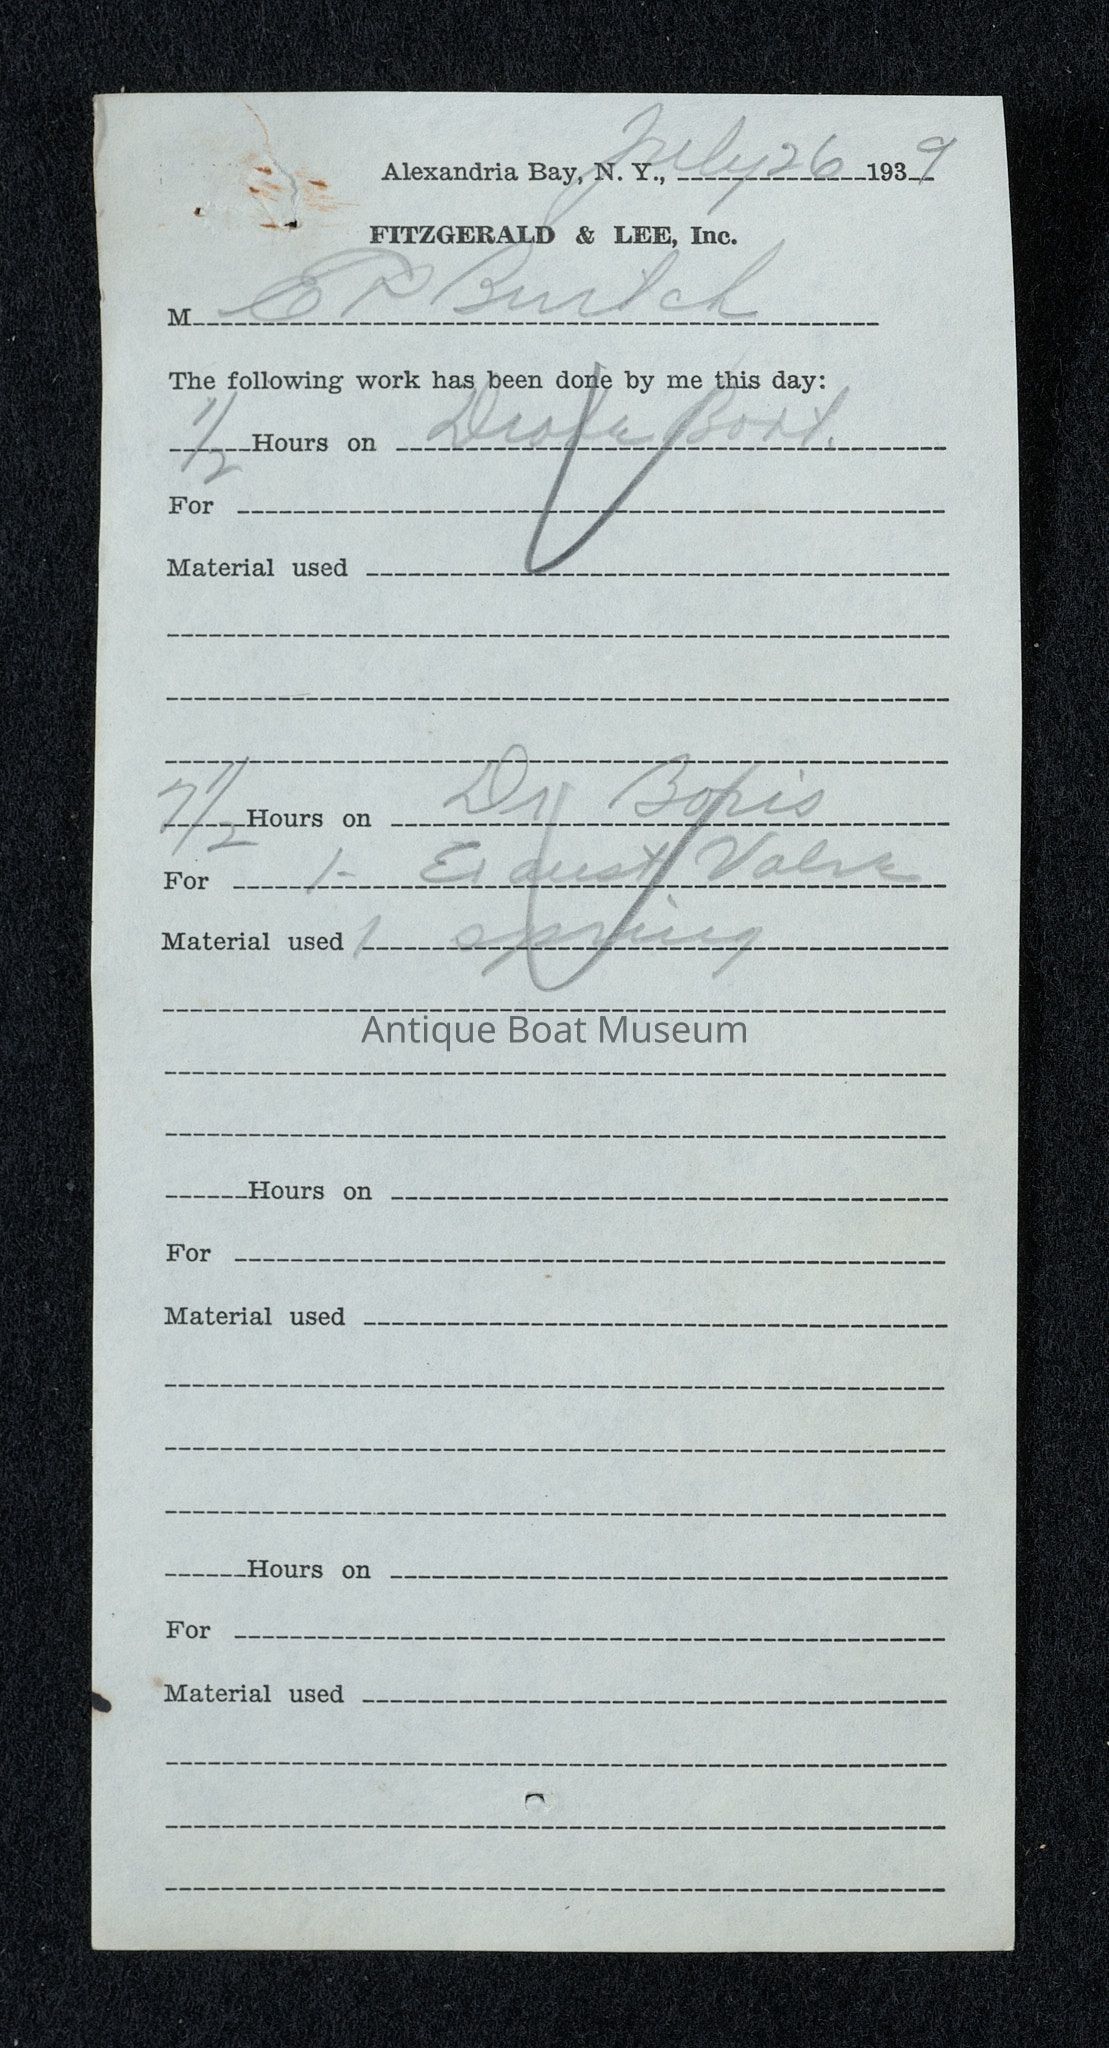 Alexandria Bay, N. Y., July 26 1939
FITZGERALD & LEE, Inc.
M E P Burtch
The following work has been done by me this day:
1/2 Hours on Boat.
For
Material used
7 1/2 Hours on Dr
For 1- Exaust Valve
Material used 1 spring
Antique Boat Museum
Hours on
For
Material used
Hours on
For
Material used